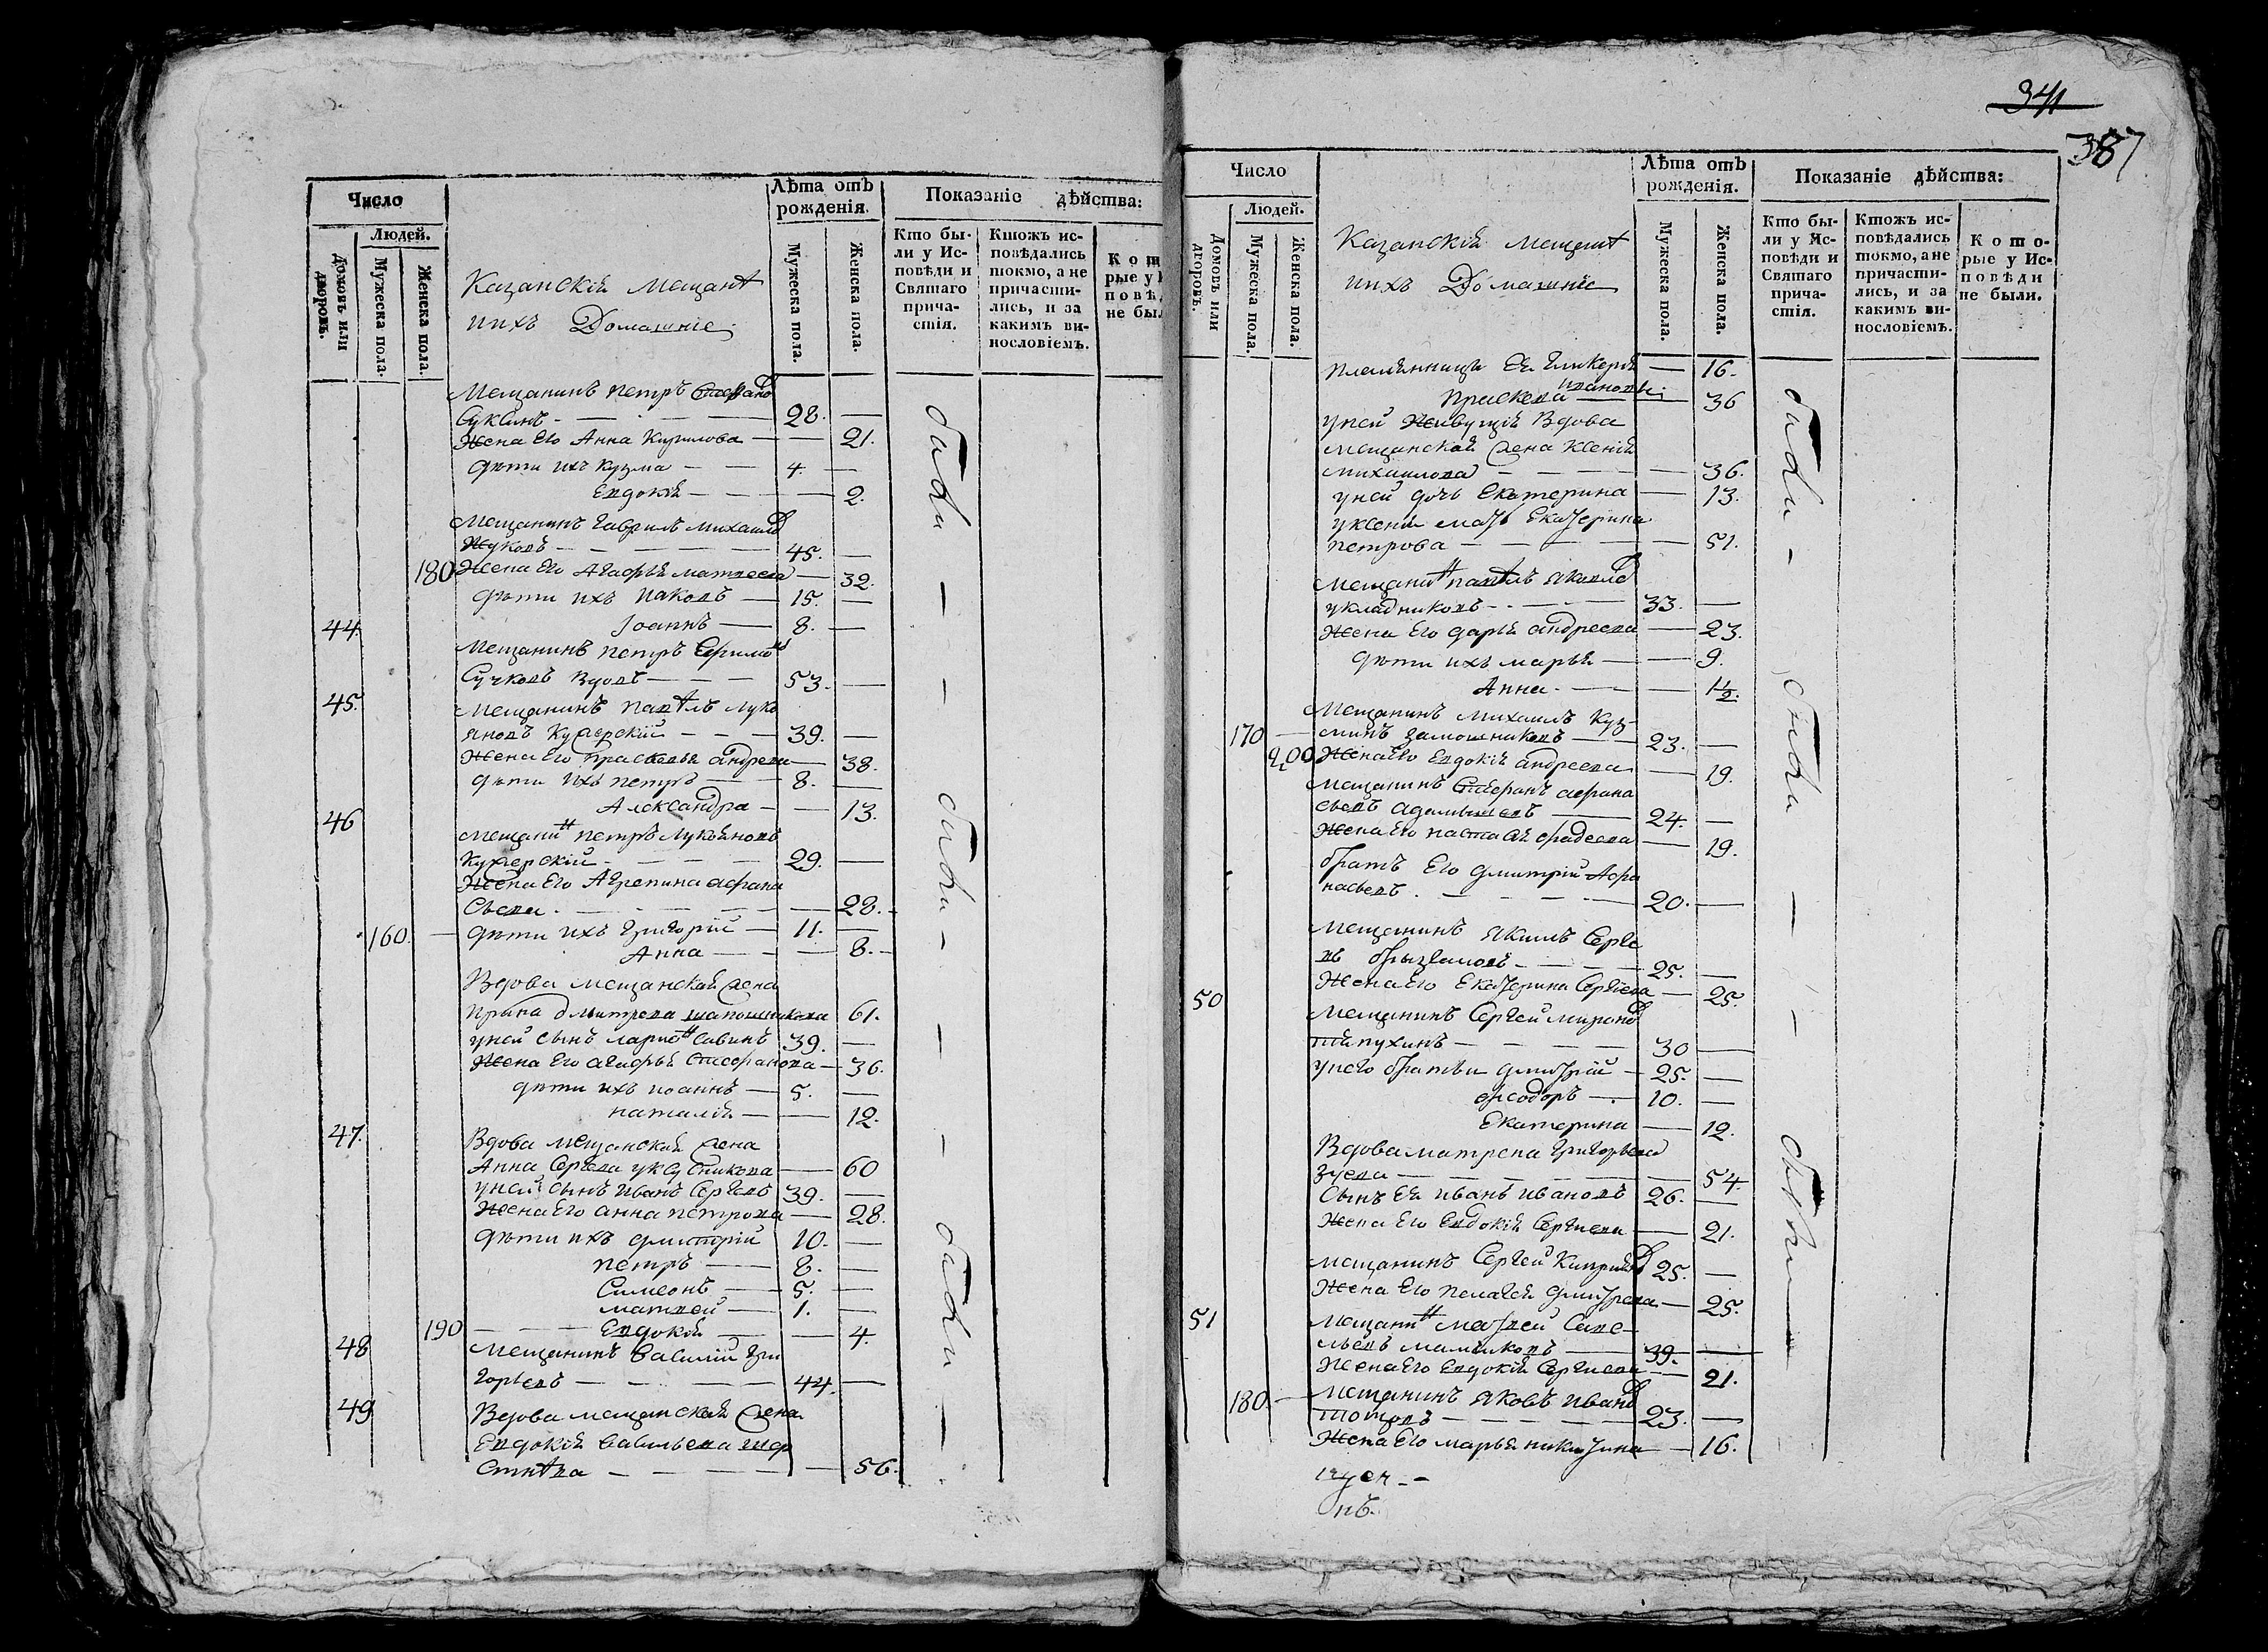 Число
Людей.
Домовъ или дворовъ.
Мужеска пола.
Женска пола.
Казанскій мещанъ
ихъ Домашніе
Лѣта отъ рожденія.
Мужеска пола.
Женска пола.
Показаніе дѣйства:
Кто были у Исповѣди и Святаго причастія.
Ктожъ исповѣдались токмо, а не причастились, и за какимъ винословіемъ.
Мещанинъ петръ Стефано
Суксинъ 28.
Жена Его Анна Кирилова 21.
Дѣти ихъ Кузма 4.
Евдокія 2.
Мещанинъ Гаврилъ михаилов
Жуковъ 45.
180 Жена Его Агафья матвеева 32.
Дѣти ихъ Иаковъ 15.
44. Іоаннъ 8.
Мещанинъ петръ Ефимов
Сучковъ вдовъ 53.
45. Мещанинъ павелъ луко
яновъ 39.
Жена Его прасковья андреева 38.
Дѣти ихъ петръ 8.
Александра 13.
46 мещанинъ петръ Лукьяновъ
29.
Жена Его Агрепина афана
сьева 28.
160. Дѣти ихъ Григорій 11.
Анна 8.
Вдова мещанская жена
Ирина дмитрева шапошникова 61.
уней сынъ ларионъ савинъ 39.
Жена Его агафья Стефанова 36.
дѣти ихъ иоаннъ 5.
наталія 12.
47. Вдова мещанская жена
Анна Сергева уксусникова 60
уней сынъ иванъ Сергевъ 39.
Жена Его анна петрова 28.
Дѣти ихъ дмитрій 10.
петръ 8.
Симеонъ 5.
матвей 1.
190 Евдокія 4.
48 мещанинъ василій гри
горьевъ 44.
49 Вдова мещанская жена
Евдокія васильева шер
стнева 56.
были были были
341
387
Число
Людей.
Домовъ или дворовъ.
Мужеска пола.
Женска пола.
Казанскій мещанъ
ихъ Домашніе
Лѣта отъ рожденія.
Мужеска пола.
Женска пола.
Показаніе дѣйства:
Кто были у Исповѣди и Святаго причастія.
Ктожъ исповѣдались токмо, а не причастились, и за какимъ винословіемъ.
Которые у Исповѣди не были.
племянницы Ея гликерія 16.
ивановы
Праскева 36
уней Живущія Вдова
мещанская жена Ксенія
михаилова 36.
уней дочь Екатерина 13.
уксении мать Екатерина
петрова 51.
мещанинъ павелъ яковлев
укладниковъ 33.
Жена Его дарья андреева 23.
дѣти ихъ марья 9.
Анна 1½.
Мещанинъ михаилъ куз-
170 минъ замошниковъ 23.
200 Жена Его Евдокія андреева 19.
мещанинъ Стефанъ афана
сьевъ 24.
Жена Его настасья фадеева 19.
братъ Его дмитрій Афа
насьевъ 20.
мещанинъ якимъ Серге
въ брызгаловъ 25.
Жена Его Екатерина Сергеева 25.
50 мещанинъ Сергей миронов
тяпухинъ 30
унего братьи дмитрій 25.
феодоръ 10.
Екатерина 12.
Вдова матрена григорьева
зуева 54.
Сынъ Ея иванъ ивановъ 26.
Жена Его Евдокія Сергиева 21.
мещанинъ Сергей 25.
Жена Его пелагея дмитрева 25.
51 мещанинъ матвей Саве-
льевъ 39.
Жена Его Евдокія Сергиева 21.
180. мещанинъ яковъ иванов
23.
Жена Его марья никитина 16.
были были были